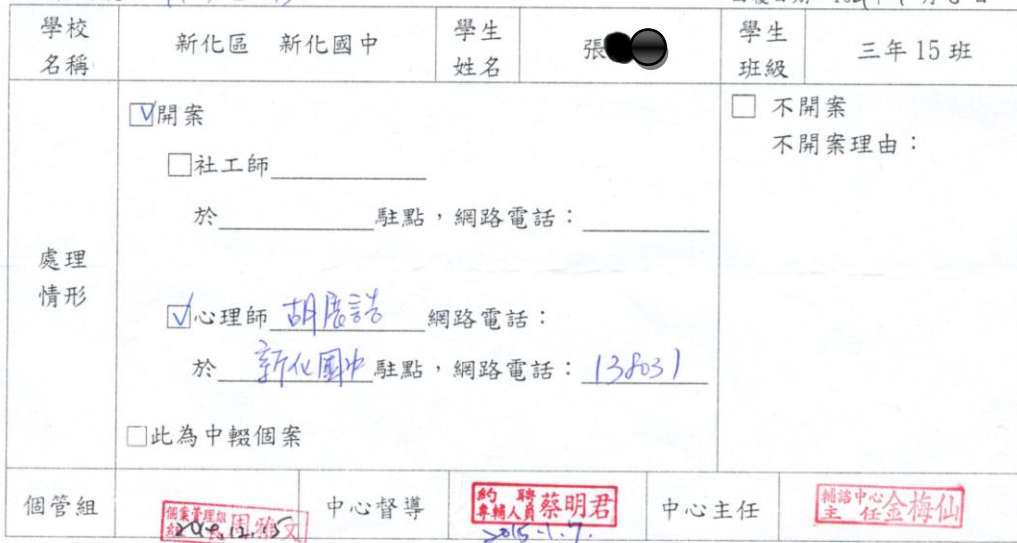 學校名稱
新化區 新化國中
學生姓名
張
學生班級
三年15班
處理情形
☑開案
□社工師
於 駐點，網路電話：
☑心理師 胡展誥 網路電話：
於 新化國中 駐點，網路電話：138031
□此為中輟個案
□ 不開案
不開案理由：
個管組
個案管理組
中心督導
約聘
專輔人員 蔡明君
2015.1.7.
中心主任
輔諮中心
主任 金梅仙